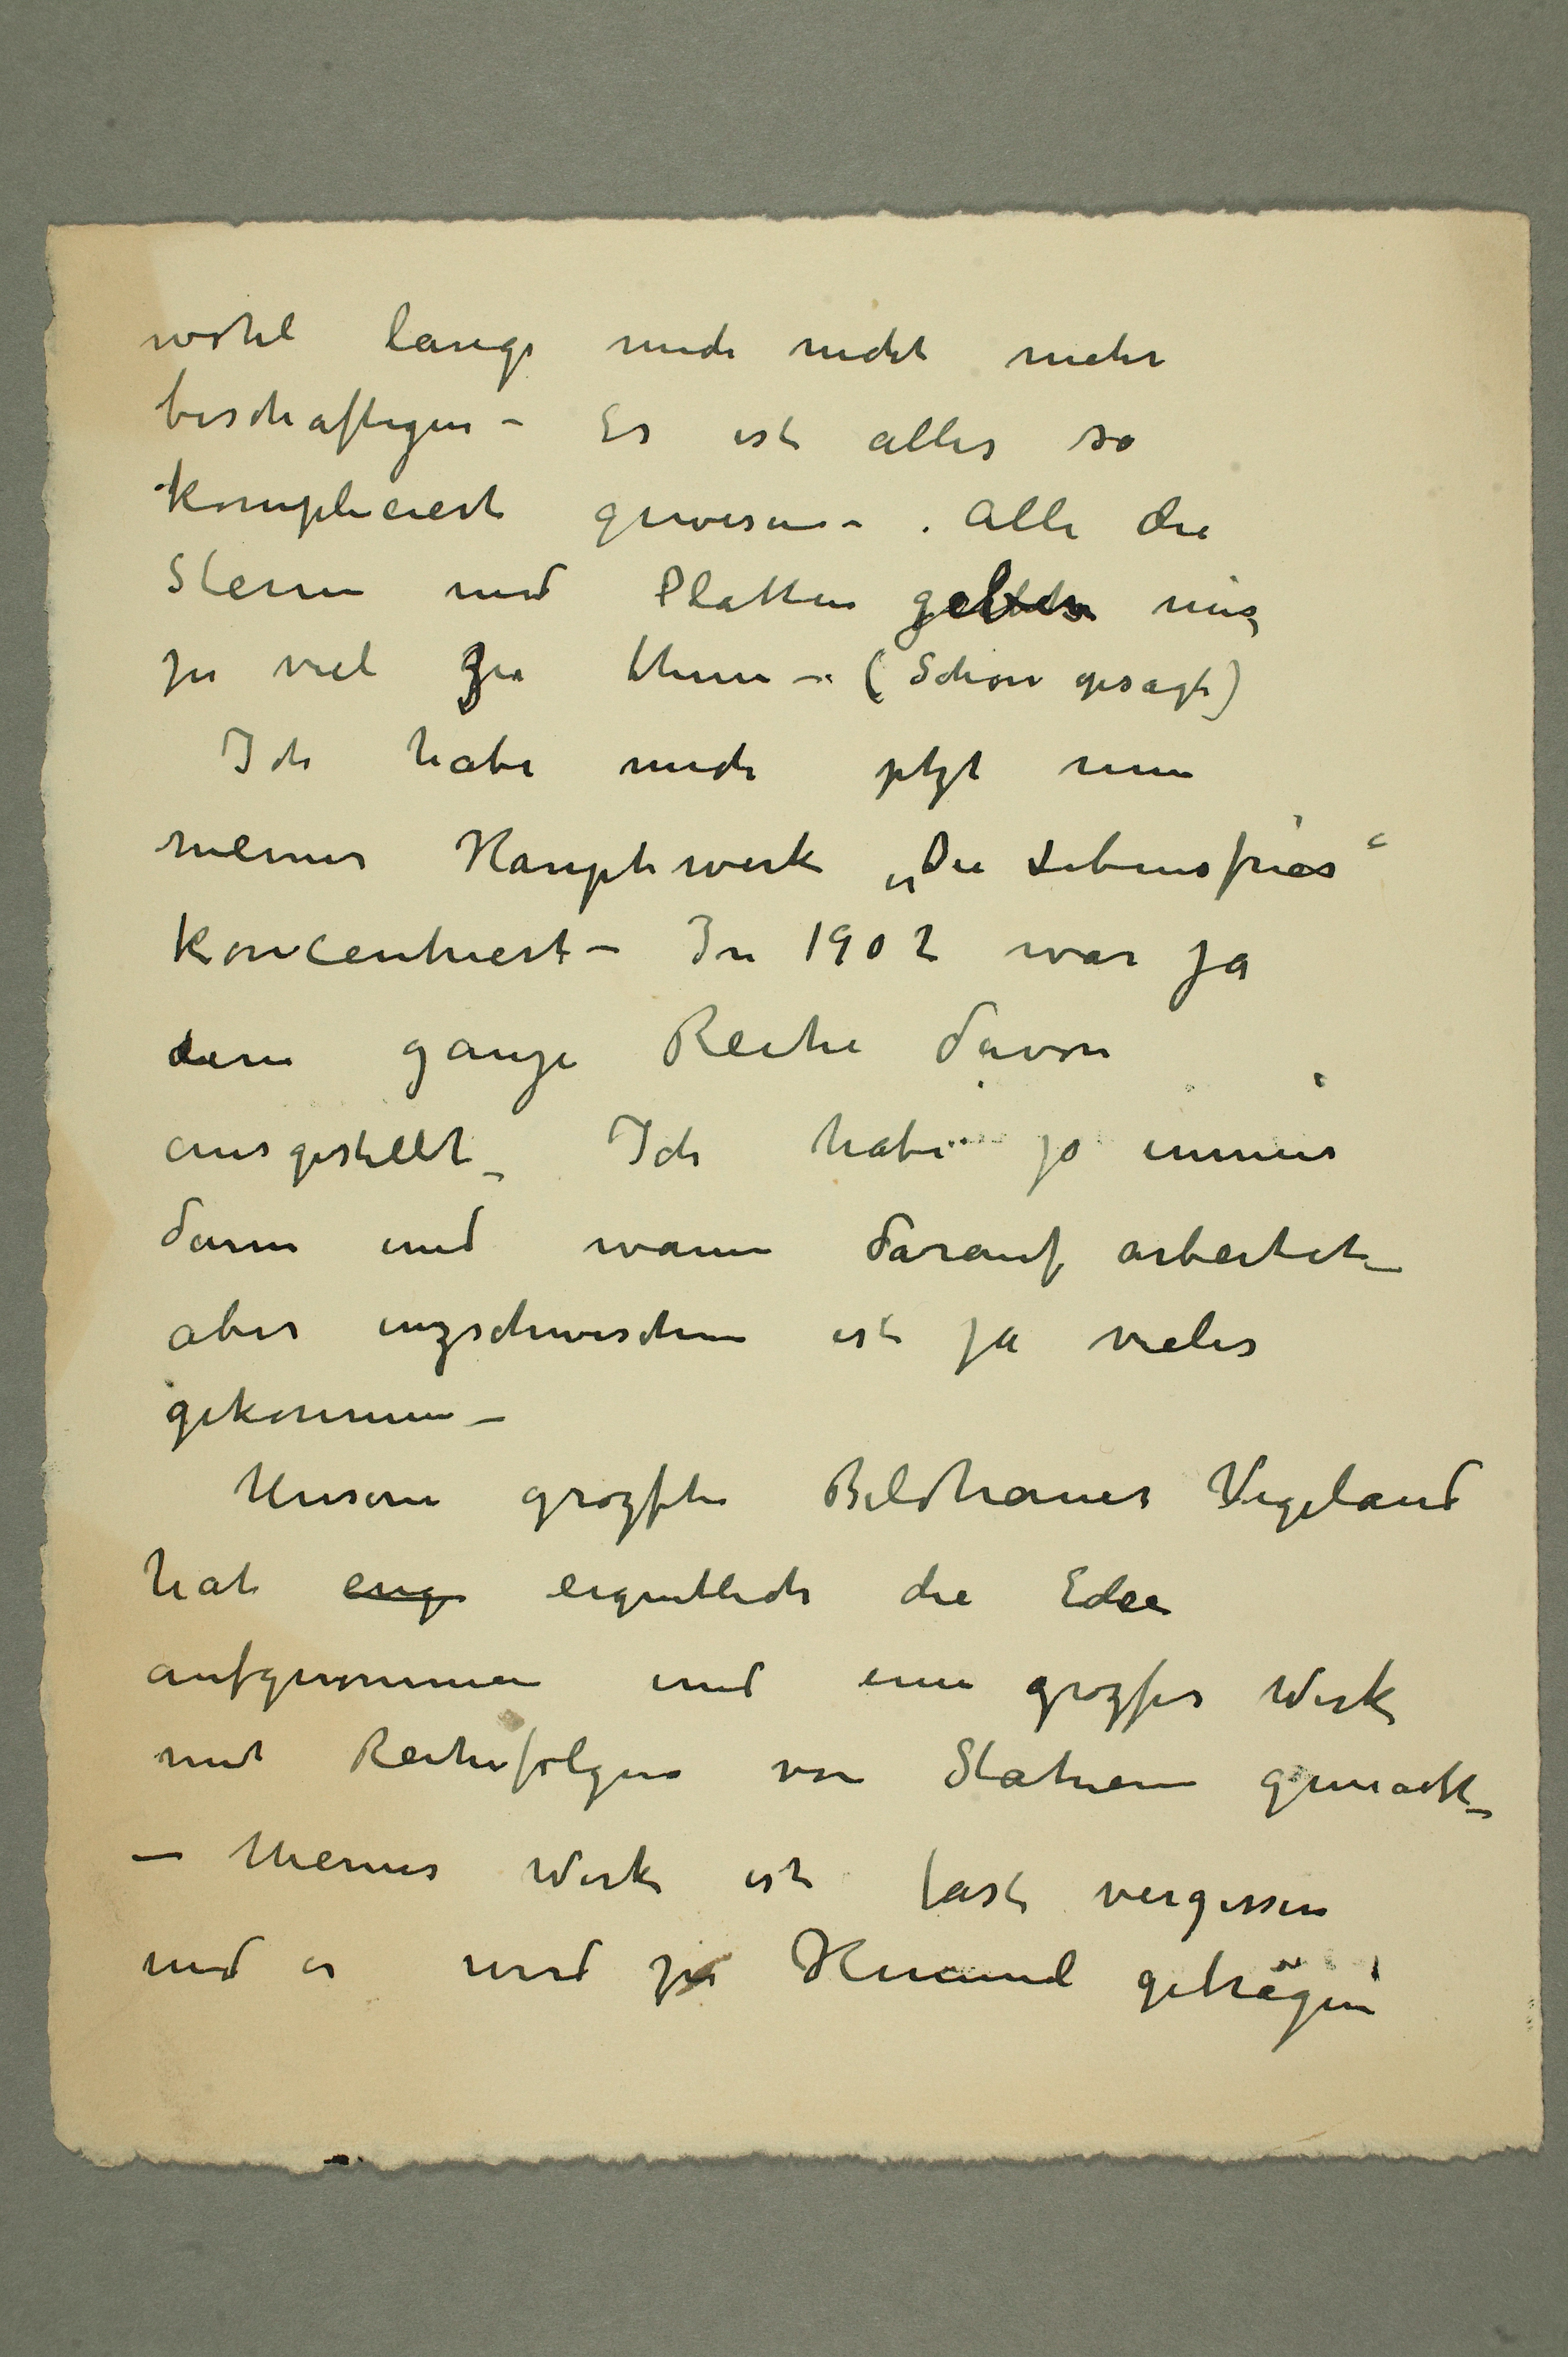 wohl lange mich nicht mehr
beschäftigen – Es ist alles so
kompliciert gewesen – . Alle die
Steine und Platten geben mir
zu viel zu thun – (Schon gesagt)
Ich habe mich jetzt nun
meiner Hauptwerk „Die Lebensfries“
koncentriert – In 1902 war ja
eine ganze Reihe davon
ausgestellt – Ich habe ja immer
dann und wann darauf arbeitet –
aber inzschwischen ist ja vieles
gekommen –
Unsere grozste Bildhauer Vigeland
hat eing eigentlich die Edee
aufgenommen und eine grozses Werk
mit Reihefolgen von Statuen gemacht –
– Meines Werk ist fast vergessen
und er wird zu Himmel getragen